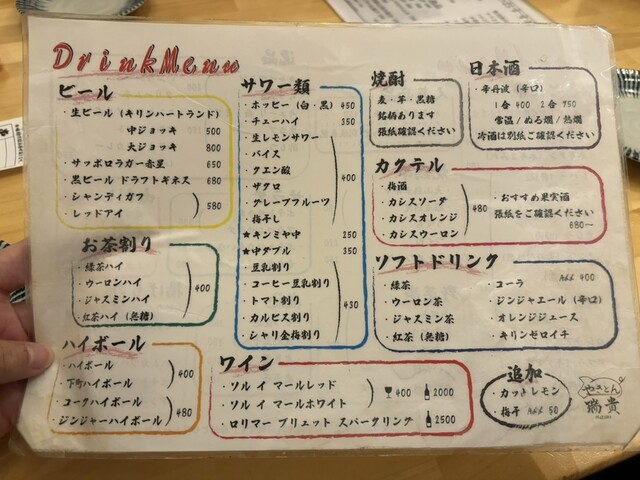 DrinkMenu
ビール
・生ビール (キリンハートランド)
中ジョッキ 500
大ジョッキ 800
・サッポロラガー赤星 650
・黒ビール ドラフトギネス 680
・シャンディガフ
・レッドアイ
580
お茶割り
・緑茶ハイ
・ウーロンハイ
・ジャスミンハイ
・紅茶ハイ (無糖)
400
ハイボール
・ハイボール
・下町ハイボール
400
・コークハイボール
・ジンジャーハイボール
480
サワー類
・ホッピー (白・黒) 450
・チューハイ 350
・生レモンサワー
・バイス
・クエン酸
・ザクロ
・グレープフルーツ
・梅干し
400
★キンミヤ中 250
★中ダブル 350
・豆乳割り
・コーヒー豆乳割り
・トマト割り
・カルピス割り
・シャリ金梅割り
430
焼酎
麦・芋・黒糖
銘柄あります
張紙確認ください
日本酒
・辛丹波 (辛口)
1合 400 2合 750
常温/ぬる燗/熱燗
冷酒は別紙ご確認ください
カクテル
・梅酒
・カシスソーダ
・カシスオレンジ
・カシスウーロン
480
おすすめ果実酒
張紙をご確認ください
680〜
ソフトドリンク
・緑茶
・ウーロン茶
・ジャスミン茶
・紅茶 (無糖)
・コーラ ALL 400
・ジンジャエール (辛口)
・オレンジジュース
・キリンゼロイチ
ワイン
・ソル イ マールレッド
・ソル イ マールホワイト
400 2000
・ロリマー ブリュット スパークリング 2500
追加
・カットレモン
・梅干 ALL 50
やきとん
瑞貴